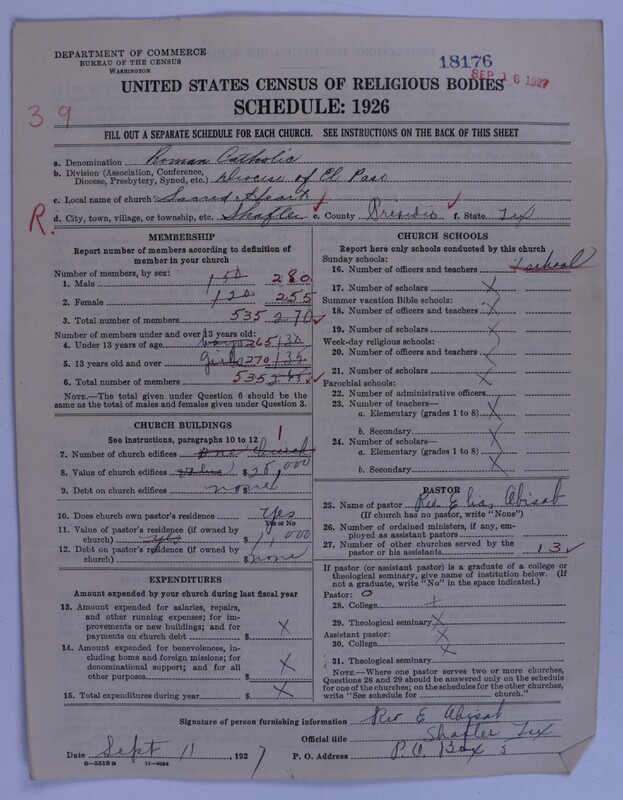 DEPARTMENT OF COMMERCE
BUREAU OF THE CENSUS
WASHINGTON
18176
SEP 16 1927
UNITED STATES CENSUS OF RELIGIOUS BODIES
SCHEDULE: 1926
39
FILL OUT A SEPARATE SCHEDULE FOR EACH CHURCH. SEE INSTRUCTIONS ON THE BACK OF THIS SHEET
a. Denomination Roman Catholic
b. Division (Association, Conference, Diocese, Presbytery, Synod, etc.) Diocese of El Paso
c. Local name of church Sacred Heart
R.
d. City, town, village, or township, etc. Shafter e. County Presidio f. State Tex
MEMBERSHIP
Report number of members according to definition of member in your church
Number of members, by sex:
1. Male 150 280
2. Female 120 255
3. Total number of members 535 270
Number of members under and over 13 years old:
4. Under 13 years of age boys 265 130
5. 13 years old and over girls 270 135
6. Total number of members 535 265
NOTE.—The total given under Question 6 should be the same as the total of males and females given under Question 3.
CHURCH BUILDINGS
See instructions, paragraphs 10 to 12
7. Number of church edifices one church 1
8. Value of church edifices value $ 25,000
9. Debt on church edifices none
10. Does church own pastor's residence Yes
Yes or No
11. Value of pastor's residence (if owned by church) yes $ 1,000
12. Debt on pastor's residence (if owned by church) $ none
EXPENDITURES
Amount expended by your church during last fiscal year
13. Amount expended for salaries, repairs, and other running expenses; for improvements or new buildings; and for payments on church debt $ X
14. Amount expended for benevolences, including home and foreign missions; for denominational support; and for all other purposes $ X
15. Total expenditures during year $ X
CHURCH SCHOOLS
Report here only schools conducted by this church
Sunday schools:
16. Number of officers and teachers 1 school
17. Number of scholars X
Summer vacation Bible schools:
18. Number of officers and teachers X
19. Number of scholars X
Week-day religious schools:
20. Number of officers and teachers X
21. Number of scholars X
Parochial schools:
22. Number of administrative officers
23. Number of teachers—
a. Elementary (grades 1 to 8) X
b. Secondary X
24. Number of scholars—
a. Elementary (grades 1 to 8) X
b. Secondary X
PASTOR
25. Name of pastor Rev. Elias Abisab
(If church has no pastor, write "None")
26. Number of ordained ministers, if any, employed as assistant pastors
27. Number of other churches served by the pastor or his assistants 13
If pastor (or assistant pastor) is a graduate of a college or theological seminary, give name of institution below. (If not a graduate, write "No" in the space indicated.)
Pastor: O
28. College X
29. Theological seminary X
Assistant pastor: X
30. College X
31. Theological seminary
NOTE.—Where one pastor serves two or more churches, Questions 28 and 29 should be answered only on the schedule for one of the churches; on the schedules for the other churches, write "See schedule for church."
Signature of person furnishing information Rev E Abisab
Official title Shafter Tex
Date Sept 11, 1927 P. O. Address P.O. Box 5
8—5318 a 11—9084